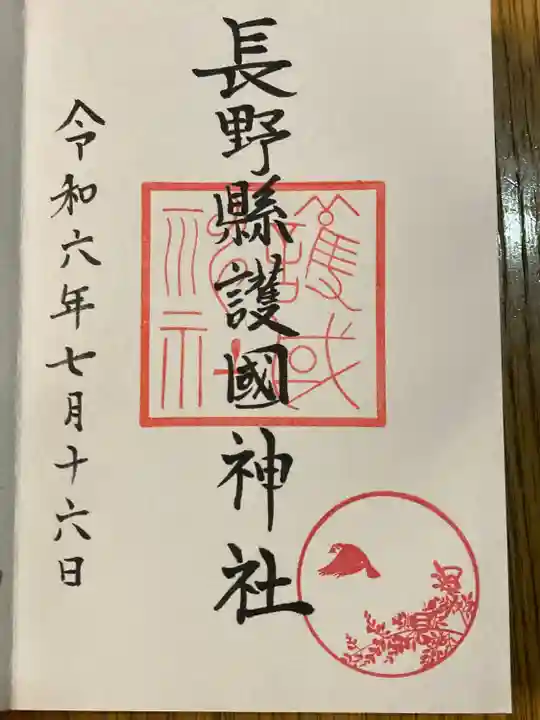 長野縣護國神社
令和六年七月十六日